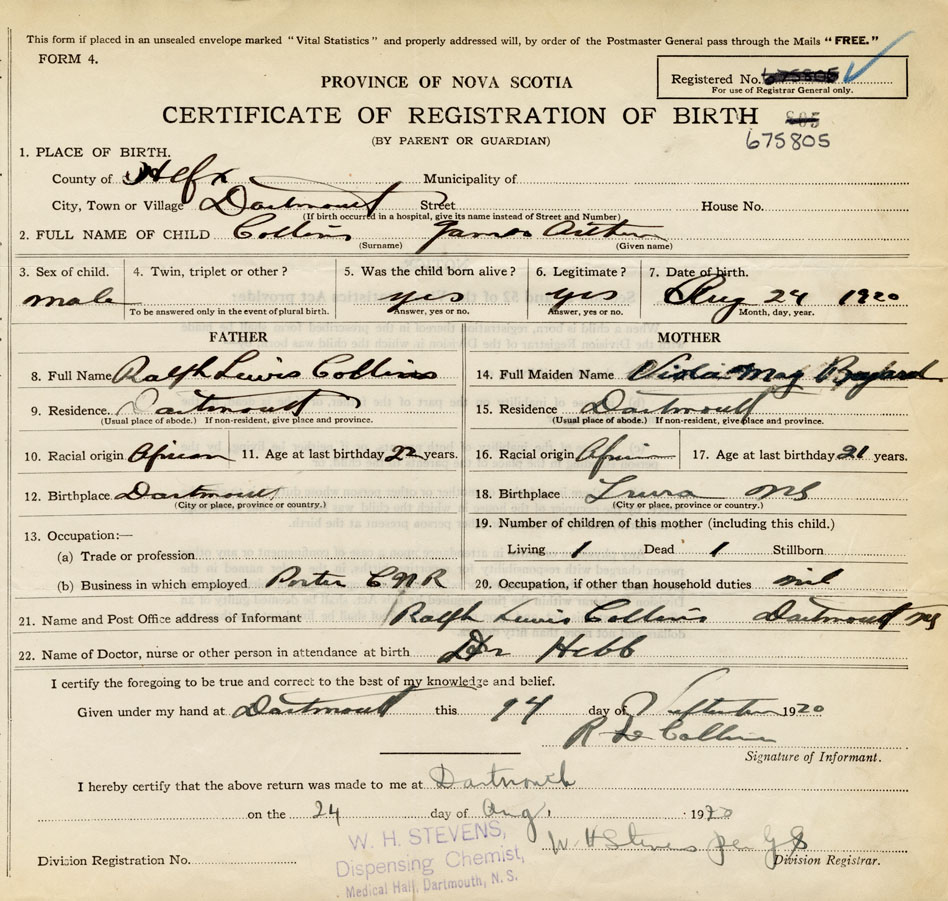 This form if placed in an unsealed envelope marked "Vital Statistics" and properly addressed will, by order of the Postmaster General pass through the Mails "FREE."
FORM 4.
Registered No. 675805
For use of Registrar General only.
PROVINCE OF NOVA SCOTIA
CERTIFICATE OF REGISTRATION OF BIRTH 805
(BY PARENT OR GUARDIAN) 675805
1. PLACE OF BIRTH.
County of Hlfx Municipality of
City, Town or Village Dartmouth Street House No.
(If birth occurred in a hospital, give its name instead of Street and Number)
2. FULL NAME OF CHILD Collins James Arthur
(Surname) (Given name)
3. Sex of child. 4. Twin, triplet or other? 5. Was the child born alive? 6. Legitimate? 7. Date of birth.
male yes yes Aug 24 1920
To be answered only in the event of plural birth. Answer, yes or no. Answer, yes or no. Month, day, year.
FATHER MOTHER
8. Full Name Ralph Lewis Collins 14. Full Maiden Name Viola May Bayard
9. Residence. Dartmouth 15. Residence Dartmouth
(Usual place of abode.) If non-resident, give place and province. (Usual place of abode.) If non-resident, give place and province.
10. Racial origin African 11. Age at last birthday 22 years. 16. Racial origin African 17. Age at last birthday 21 years.
12. Birthplace Dartmouth 18. Birthplace Truro NS
(City or place, province or country.) (City or place, province or country.)
13. Occupation:— 19. Number of children of this mother (including this child.)
(a) Trade or profession Living 1 Dead 1 Stillborn
(b) Business in which employed Porter CNR 20. Occupation, if other than household duties nil
21. Name and Post Office address of Informant Ralph Lewis Collins Dartmouth NS
22. Name of Doctor, nurse or other person in attendance at birth Dr Hebb
I certify the foregoing to be true and correct to the best of my knowledge and belief.
Given under my hand at Dartmouth this 14 day of 1920
R Le Collins
Signature of Informant.
I hereby certify that the above return was made to me at Dartmouth
on the 24 day of Aug. 1920
W H Stevens per G S
W. H. STEVENS,
Dispensing Chemist,
Medical Hall, Dartmouth, N. S.
Division Registration No. Division Registrar.